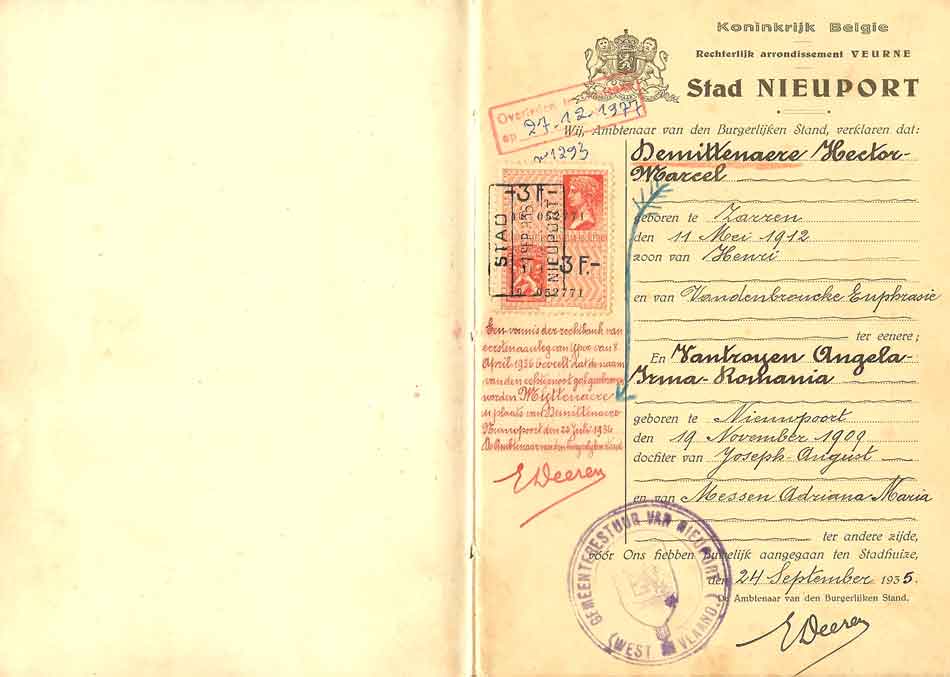 Koninkrijk Belgie
Rechterlijk arrondissement VEURNE
Stad NIEUPORT
Overleden te
op 27-12-1977
n° 1293
Wij, Ambtenaar van den Burgerlijken Stand, verklaren dat:
Demittenaere Hector-
Marcel
geboren te Zarren
den 11 Mei 1912
zoon van Henri
en van Vandenbroucke Euphrasie
ter eenere;
En Vantroyen Angela-
Irma-Romania
geboren te Nieuwpoort
den 19 November 1909
dochter van Joseph-August
en van Messen Adriana Maria
ter andere zijde,
vóór Ons hebben huwelijk aangegaan ten Stadhuize,
den 24 September 1935.
De Ambtenaar van den Burgerlijken Stand.
E Deeren
3 F.-
STAD
NIEUPORT
052771
3 F.-
052771
Een vonnis der rechtbank van
eersten aanleg van Yper van 8
April 1936 beveelt dat de naam
van den echtgenoot zal
worden Muttenaere
in plaats van Demittenaere
Nieuwpoort den 23 Juli 1936
De Ambtenaar van den burgerlijken stand
E Deeren
GEMEENTEBESTUUR VAN NIEUPORT
(WEST VLAAND.)